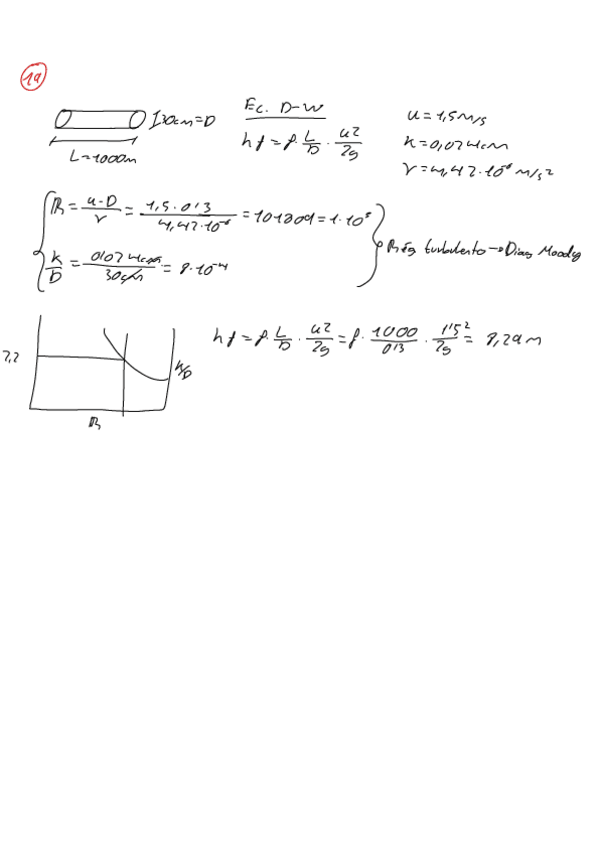 1a
30cm=D
L=1000m
Ec. D-W
hf = f · L/D · u²/2g
u = 1,5 m/s
k = 0,024cm
γ = 4,42·10⁻⁶ m/s²
R = u·D/γ = 1,5·0'3/4,42·10⁻⁶ = 101809 = 1·10⁵
k/D = 0'024cm/30cm = 8·10⁻⁴
Rég turbulento → Diag Moody
hf = f · L/D · u²/2g = f · 1000/0'3 · 1'5²/2g = 8,29 m
2,2
k/D
R